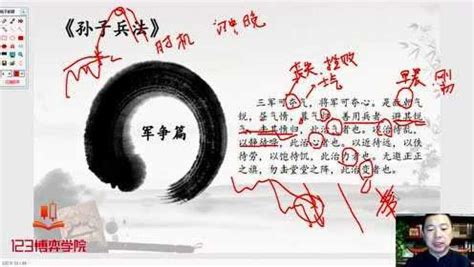 《孙子兵法》
时机
丧失 挫败
士气
三军可夺气，将军可夺心。是故朝气
锐，昼气惰，暮气归。善用兵者，避其锐
气，击其惰归，此治气者也。以治待乱，
以静待哗，此治心者也。以近待远，以佚
待劳，以饱待饥，此治力者也。无邀正正
之旗，勿击堂堂之阵，此治变者也。
军争篇
123博弈学院